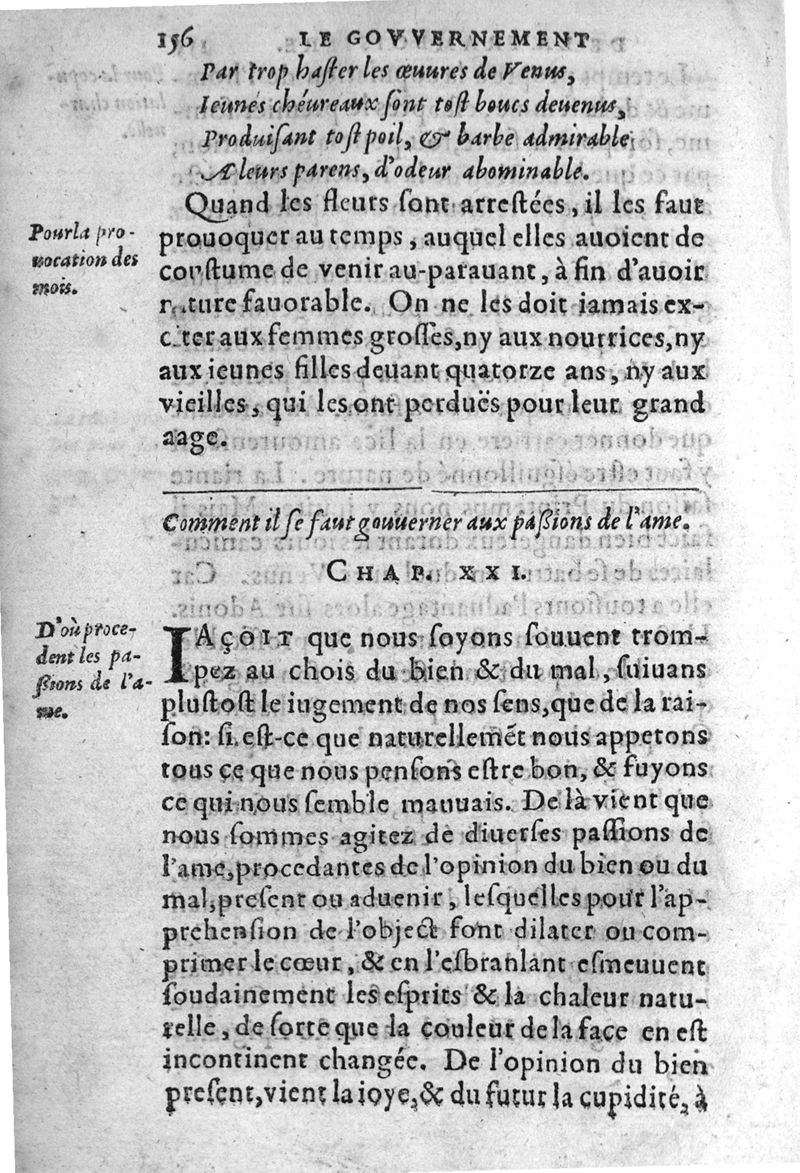 156 LE GOVVERNEMENT
Par trop haſter les œuures de Venus,
Ieunes chéureaux ſont toſt boucs deuenus,
Produiſant toſt poil, & barbe admirable
A leurs parens, d'odeur abominable.
Quand les fleurs ſont arreſtées, il les faut
Pour la pro-
uocation des
mois.
prouoquer au temps, auquel elles auoient de
couſtume de venir au-parauant, à fin d'auoir
nature fauorable. On ne les doit iamais ex-
citer aux femmes groſſes, ny aux nourrices, ny
aux ieunes filles deuant quatorze ans, ny aux
vieilles, qui les ont perduës pour leur grand
aage.
Comment il ſe faut gouuerner aux paßions de l'ame.
CHAP. XXI.
D'où proce-
dent les pa-
ßions de l'a-
me.
IAÇOIT que nous ſoyons ſouuent trom-
pez au chois du bien & du mal, ſuiuans
pluſtoſt le iugement de nos ſens, que de la rai-
ſon: ſi eſt-ce que naturellemẽt nous appetons
tous ce que nous penſons eſtre bon, & fuyons
ce qui nous ſemble mauuais. De là vient que
nous ſommes agitez de diuerſes paſſions de
l'ame, procedantes de l'opinion du bien ou du
mal, preſent ou aduenir, leſquelles pour l'ap-
prehenſion de l'object font dilater ou com-
primer le cœur, & en l'esbranlant eſmeuuent
ſoudainement les eſprits & la chaleur natu-
relle, de ſorte que la couleur de la face en eſt
incontinent changée. De l'opinion du bien
preſent, vient la ioye, & du futur la cupidité, à